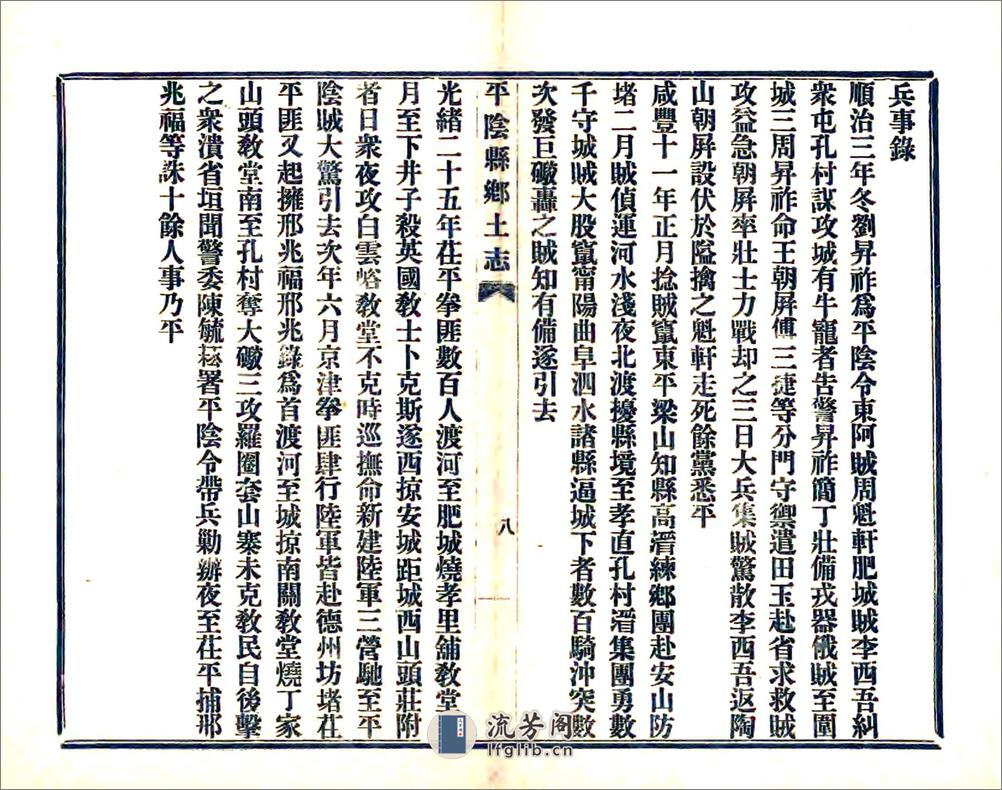 兵事錄
順治三年冬劉昇祚爲平陰令東阿賊周魁軒肥城賊李西吾糾
衆屯孔村謀攻城有牛寵者告警昇祚簡丁壯備戎器俄賊至圍
城三周昇祚命王朝屏傅三捷等分門守禦遣田玉赴省求救賊
攻益急朝屏率壯士力戰却之三日大兵集賊驚散李西吾返陶
山朝屏設伏於隘擒之魁軒走死餘黨悉平
咸豐十一年正月捻賊竄東平梁山知縣高溍練鄉團赴安山防
堵二月賊偵運河水淺夜北渡擾縣境至孝直孔村溍集團勇數
千守城賊大股竄甯陽曲阜泗水諸縣逼城下者數百騎沖突數
次發巨礮轟之賊知有備遂引去
平陰縣鄉土志
八
光緒二十五年茌平拳匪數百人渡河至肥城燒孝里舖敎堂二
月至下井子殺英國敎士卜克斯遂西掠安城距城西山頭莊附
者日衆夜攻白雲峪敎堂不克時巡撫命新建陸軍三營馳至平
陰賊大驚引去次年六月京津拳匪肆行陸軍皆赴德州坊堵茌
平匪又起擁邢兆福邢兆錄爲首渡河至城掠南關敎堂燒丁家
山頭敎堂南至孔村奪大礮三攻羅圈套山寨未克敎民自後擊
之衆潰省垣聞警委陳毓崧署平陰令帶兵勦辦夜至茌平捕邢
兆福等誅十餘人事乃平
流芳阁
lfglib.cn